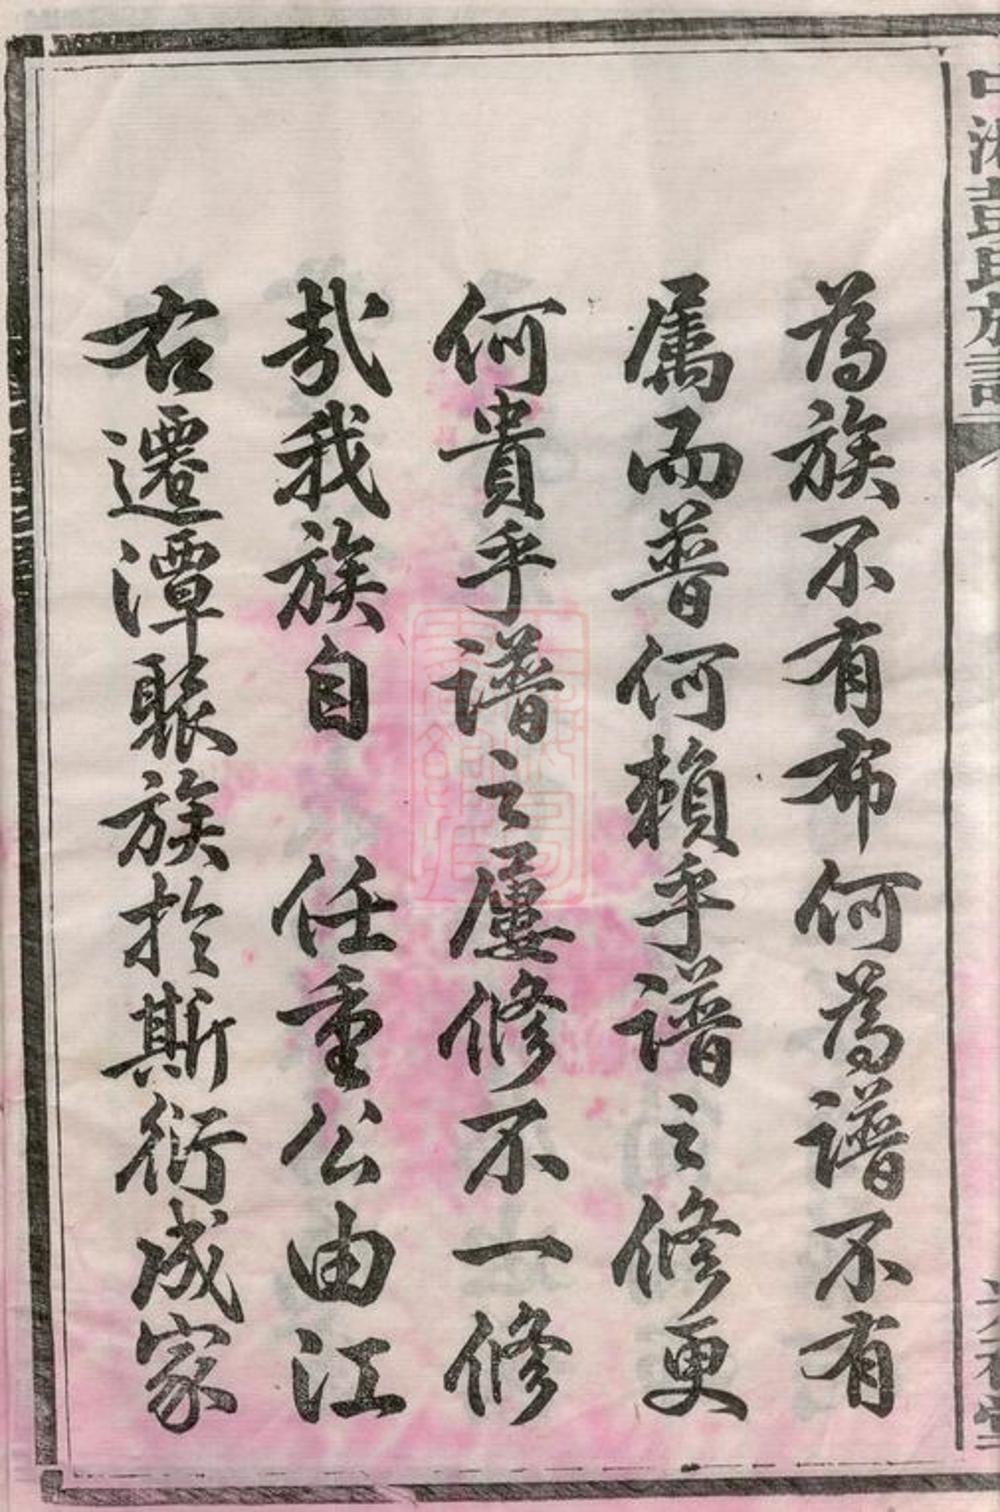 中湘彭氏族譜
為族不有布何為譜不有
屬而普何賴乎譜之修更
何貴乎譜之屢修不一修
哉我族自 任重公由江
右遷潭眂族於斯衍成家